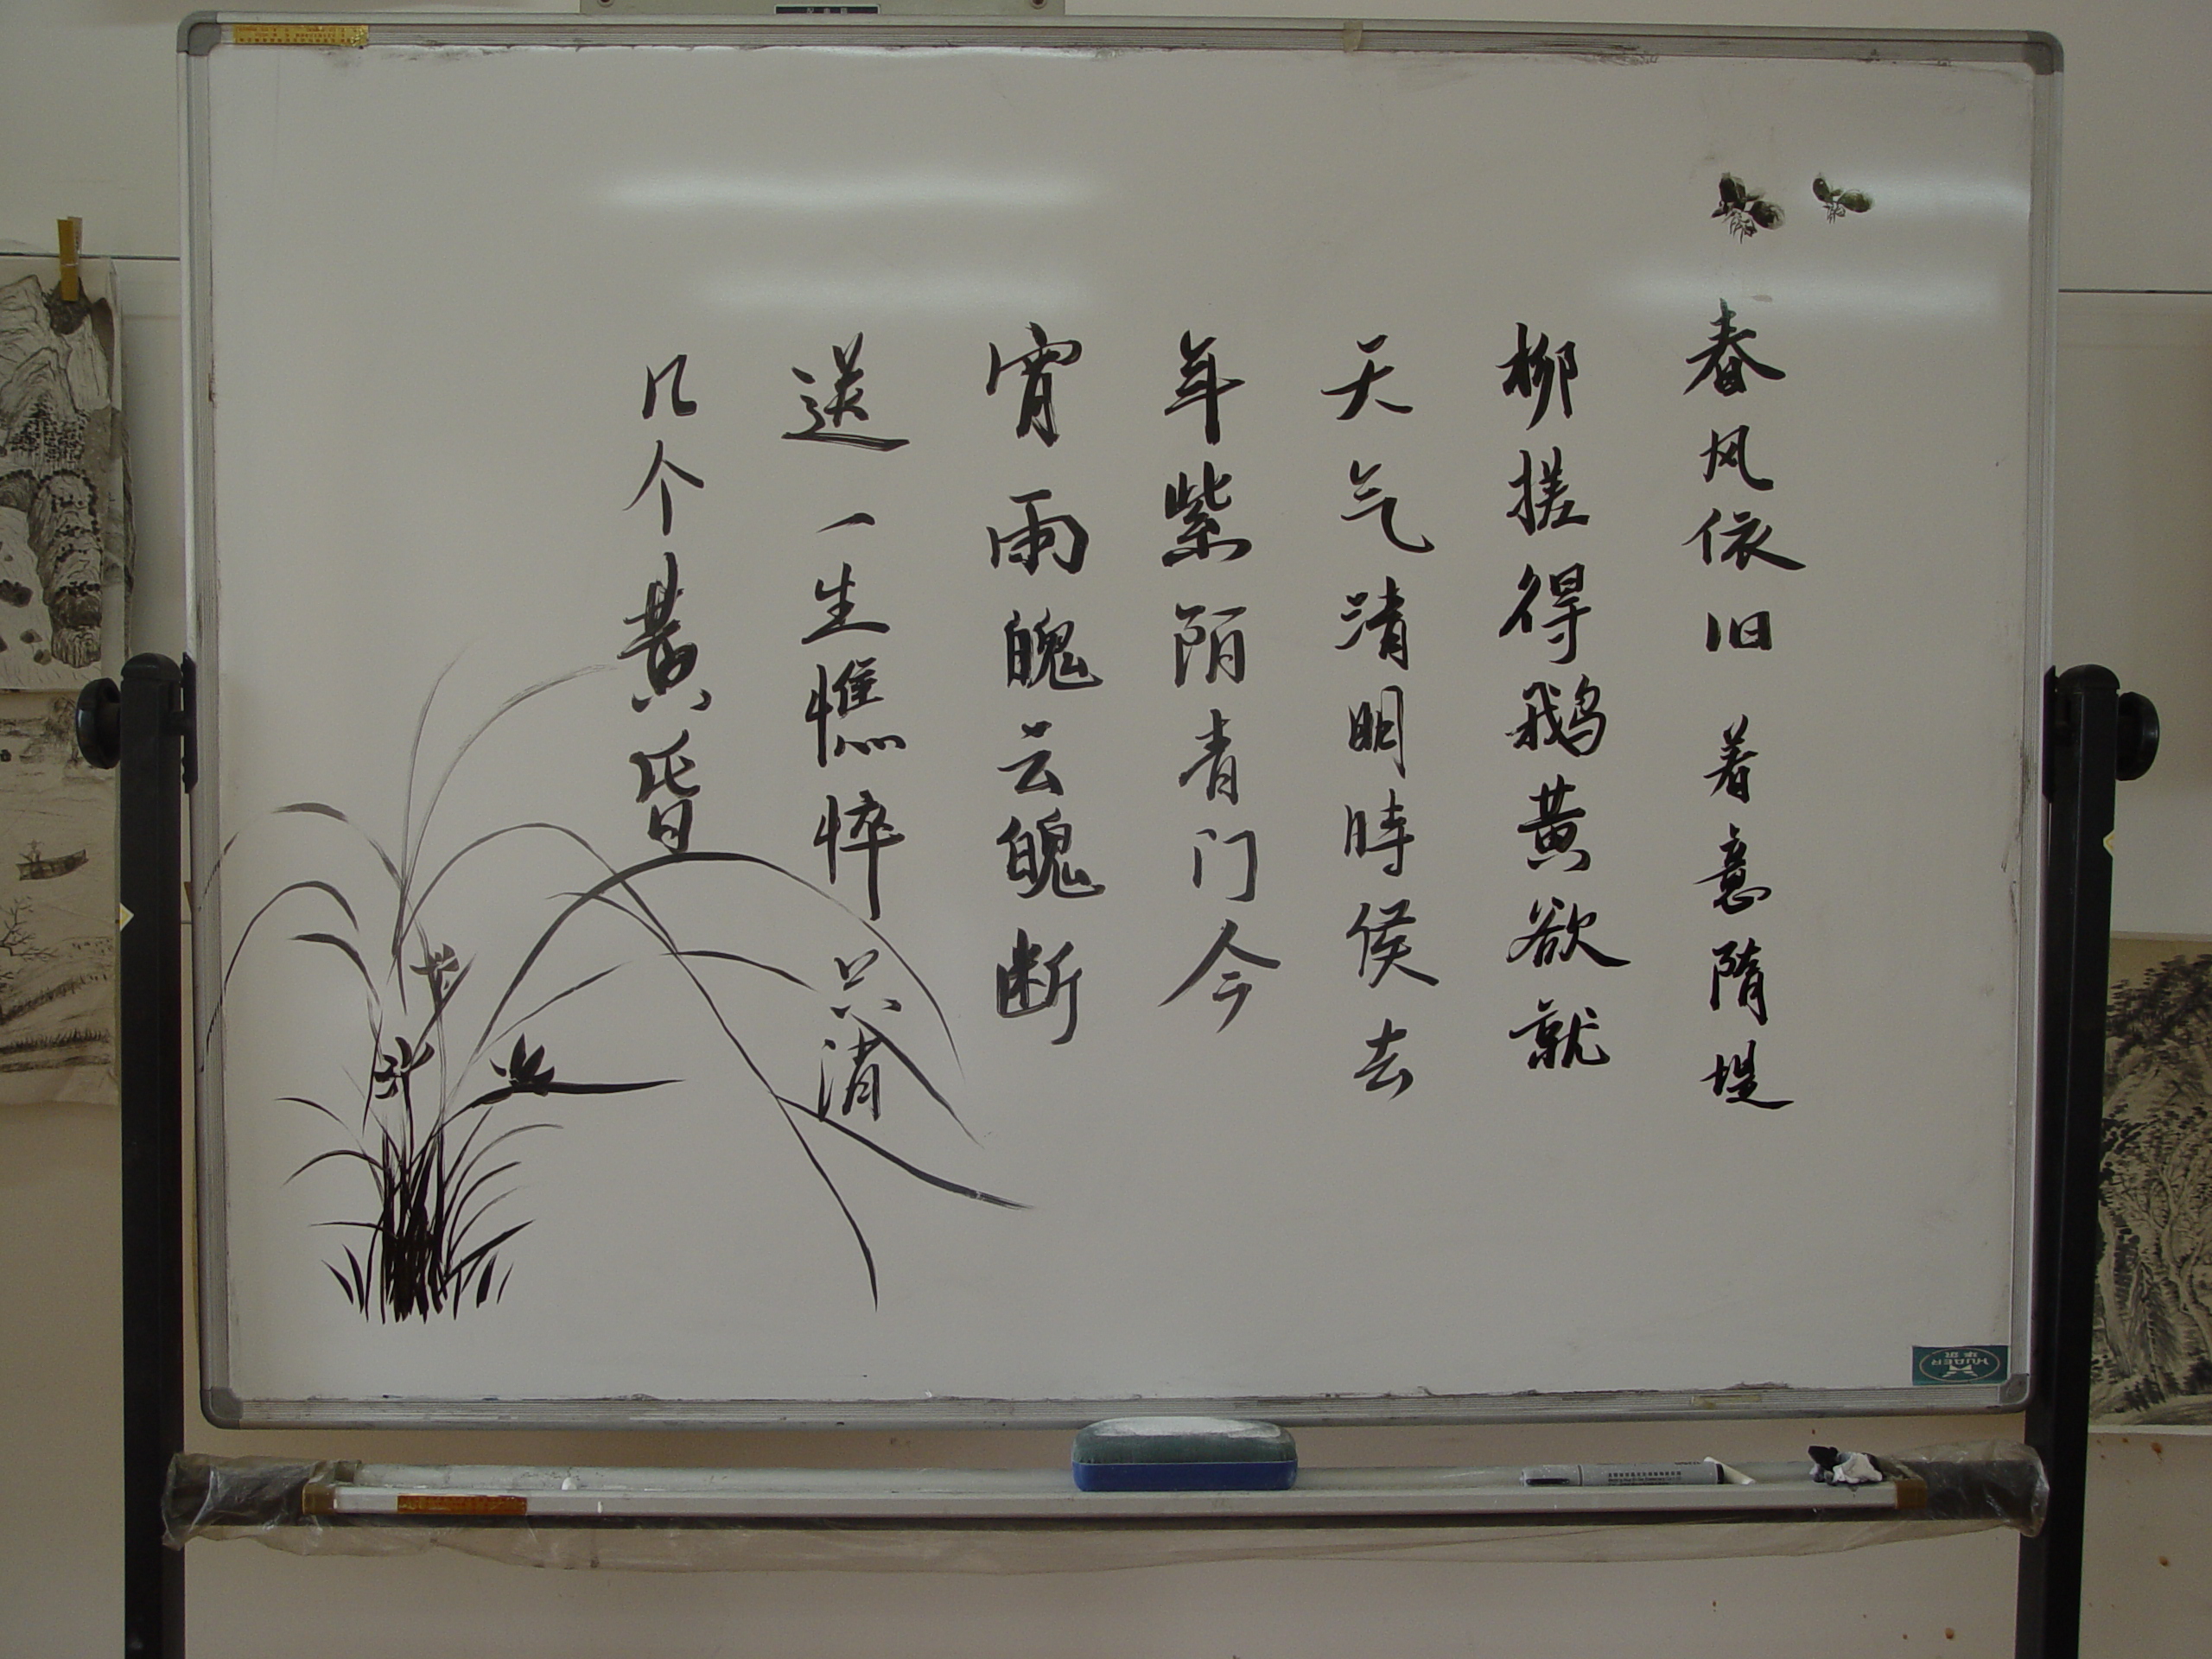 春风依旧 着意隋堤
柳搓得鹅黄欲就
天气清明時侯去
年紫陌青门今
宵雨魄云魄断
送一生憔悴 只消
几个黄昏
HUAER